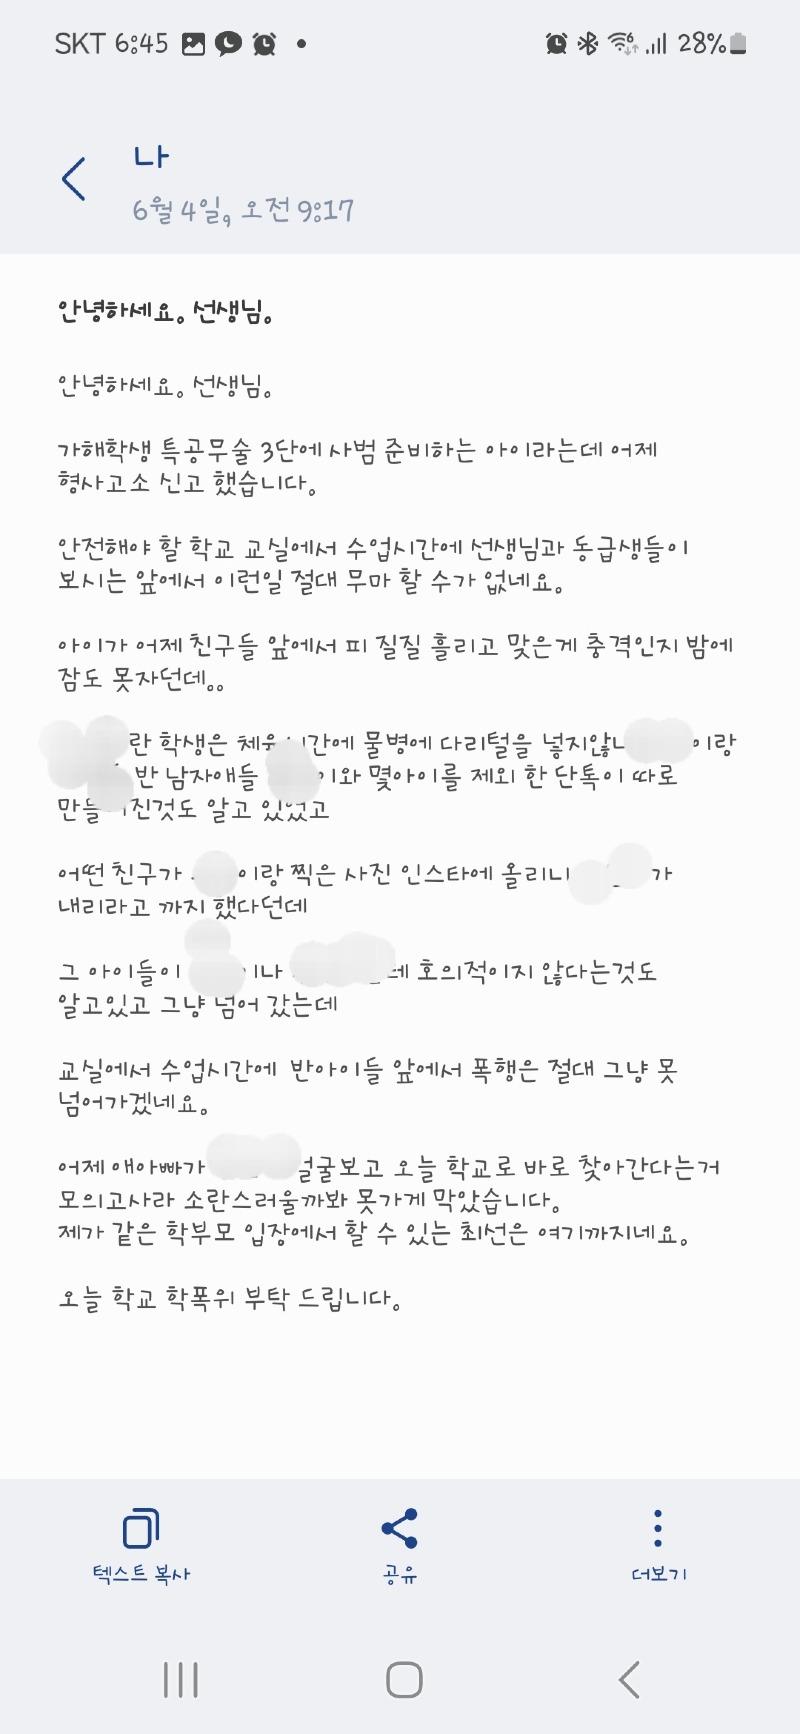 SKT 6:45
28%
나
6월 4일, 오전 9:17
안녕하세요. 선생님.
안녕하세요. 선생님.
가해학생 특공무술 3단에 사범 준비하는 아이라는데 어제
형사고소 신고 했습니다.
안전해야 할 학교 교실에서 수업시간에 선생님과 동급생들이
보시는 앞에서 이런일 절대 무마 할 수가 없네요.
아이가 어제 친구들 앞에서 피 질질 흘리고 맞은게 충격인지 밤에
잠도 못자던데..
란 학생은 물병에 다리털을 넣지않나 이랑
반 남자애들 이와 몇아이를 제외 한 단톡이 따로
알고 있었고
어떤 친구가 이랑 찍은 사진 인스타에 올리니 가
내리라고 까지 했다던데
그 아이들이 이나 호의적이지 않다는것도
알고있고 그냥 넘어 갔는데
교실에서 수업시간에 반아이들 앞에서 폭행은 절대 그냥 못
넘어가겠네요.
어제 애아빠가 얼굴보고 오늘 학교로 바로 찾아간다는거
모의고사라 소란스러울까봐 못가게 막았습니다.
제가 같은 학부모 입장에서 할 수 있는 최선은 여기까지네요.
오늘 학교 학폭위 부탁 드립니다.
텍스트 복사
공유
더보기